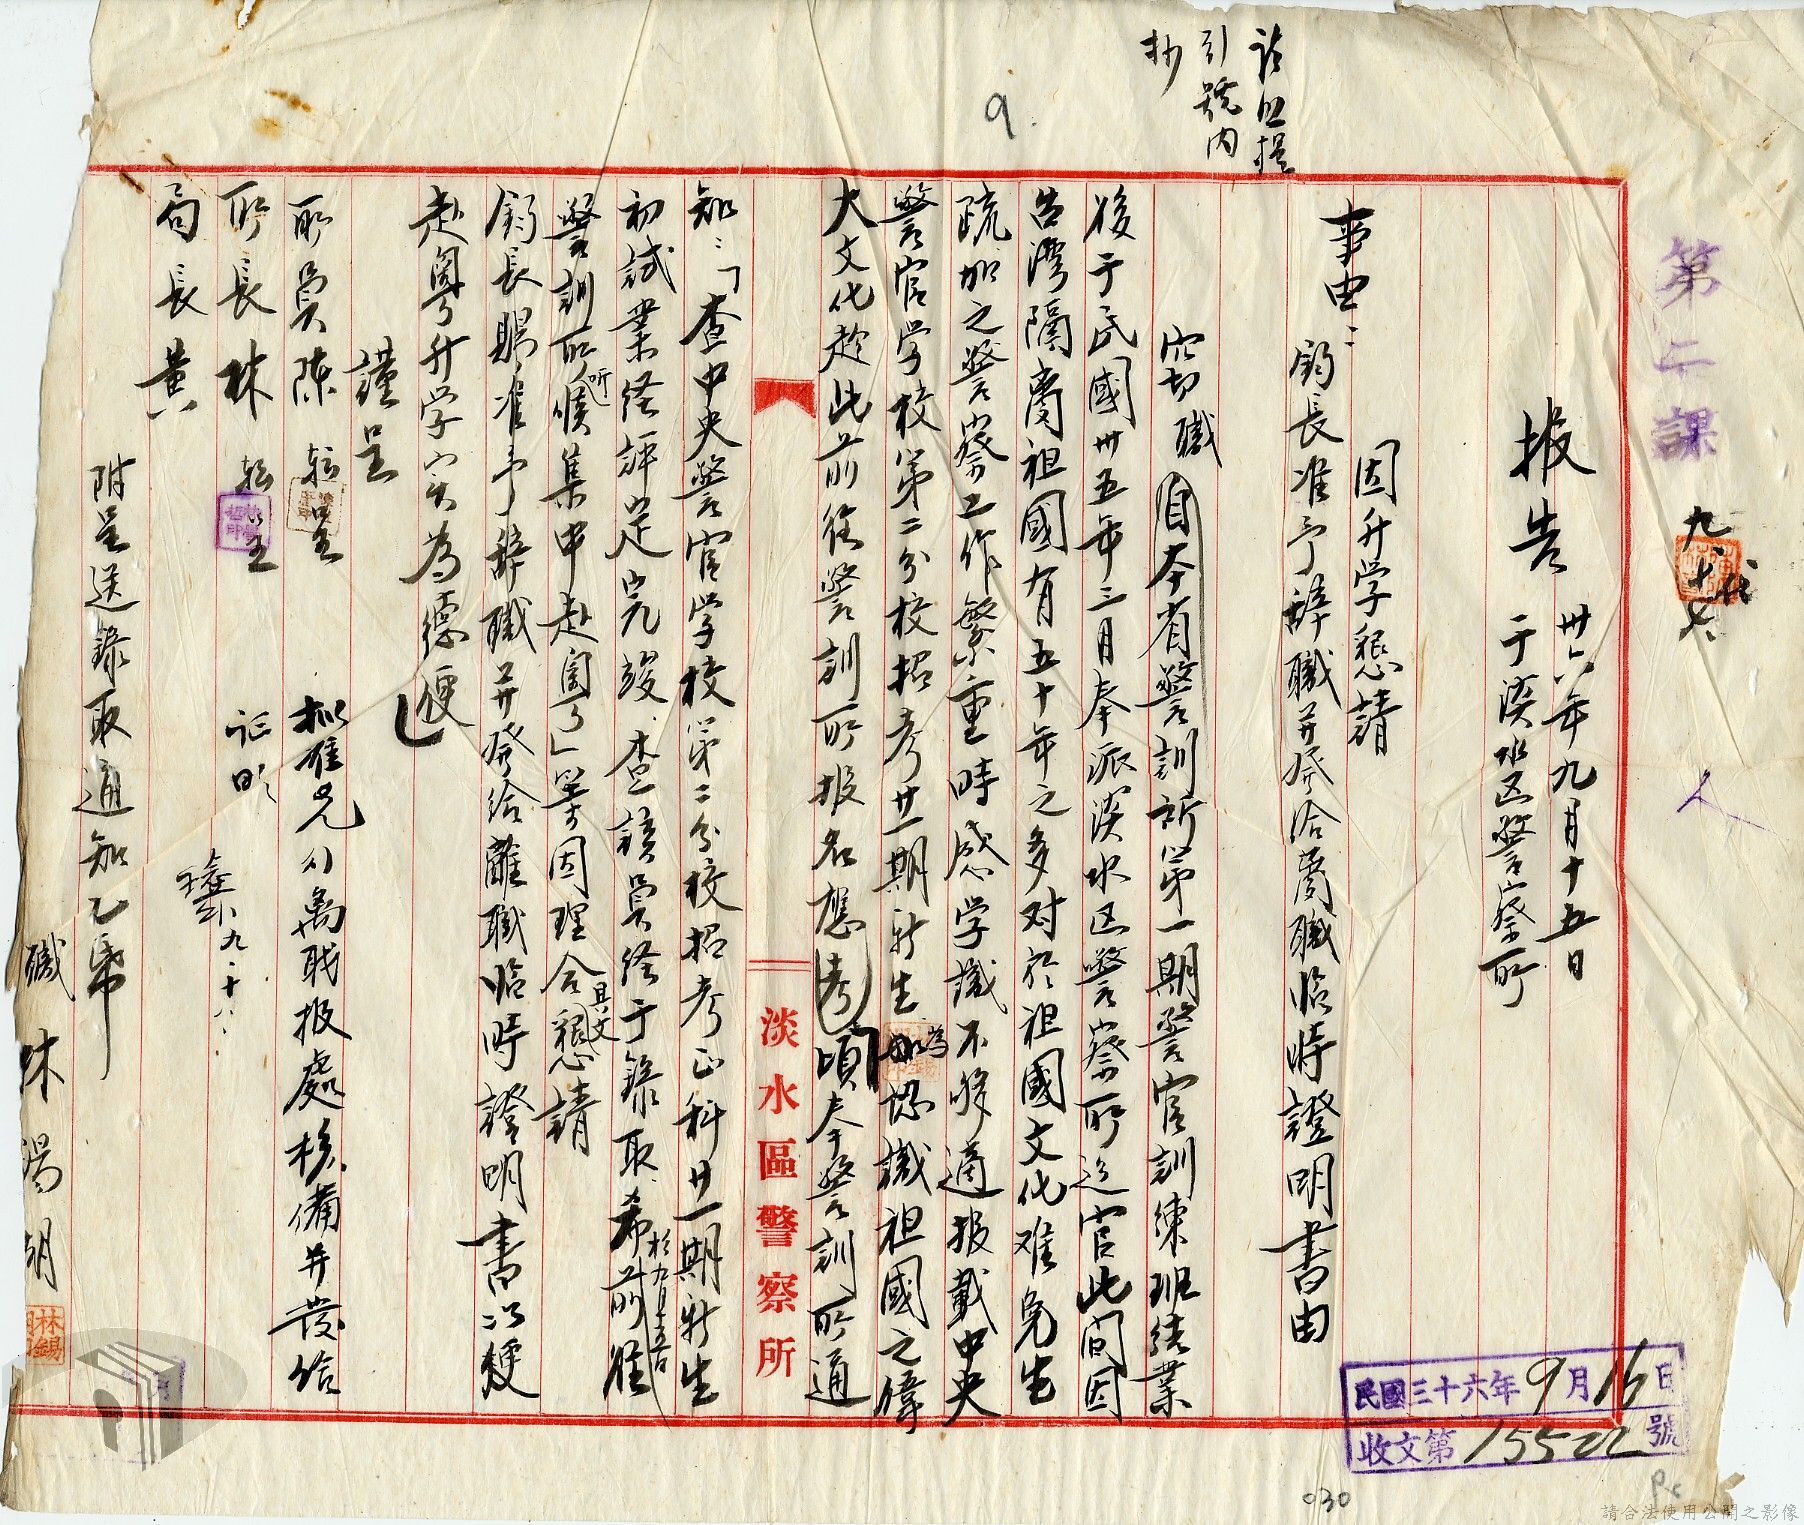 9.
引號內
抄
第二課
九.十七.
人
報告 卅六年九月十五日
于淡水區警察所
事由：
因升学懇請
鈞長准予辞職并発给离職临時證明書由
窃職自本省警訓所第一期警官訓練班結業
後于民國卅五年三月奉派淡水區警察所迄官此間因
台灣隔离祖國有五十年之多对於祖國文化难免生
疏加之警察工作繁重時感学識不够適报載中央
警官学校第二分校招考廿一期新生為認識祖國之偉
大文化趁此前往警訓所报名應考頃奉警訓所通
淡水區警察所
知：「查中央警官学校第二分校招考正科廿一期新生
初試業経評定完竣.查該員経予錄取.希於九月十五日前往
警訓所听候集中赴閩」等因理合具文懇請
鈞長賜准予辞職并発给離職临時證明書以便
赴粤升学实為德便
謹呈
所員陳 轉呈
所長林 轉呈
局長黃
拟准先以离職报處核備并发给
証明
九.十六.
附呈送錄取通知乙帋
職 林錫明
林錫明
民國三十六年9月16日
收文第15522號
030
請合法使用公開之影像